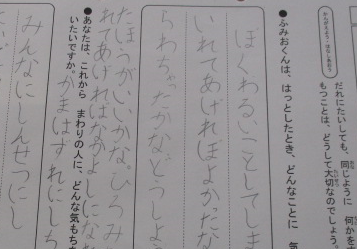 かんがえよう・はなしあおう
だれにたいしても、同じように 何かを
もつことは、どうして大切なのでしょう。
●ふみおくんは、はっとしたとき、どんなことに 気
ぼくわるいことしてま
いれてあげればよかったな
らわれちゃったかなどうしよ
たほうがいいかな。ひろみ
れてあげればなかよしになな
●あなたは、これから まわりの人に、どんな気もち
いたいですか。
かまはずれにしち
みんなにしんせつにし